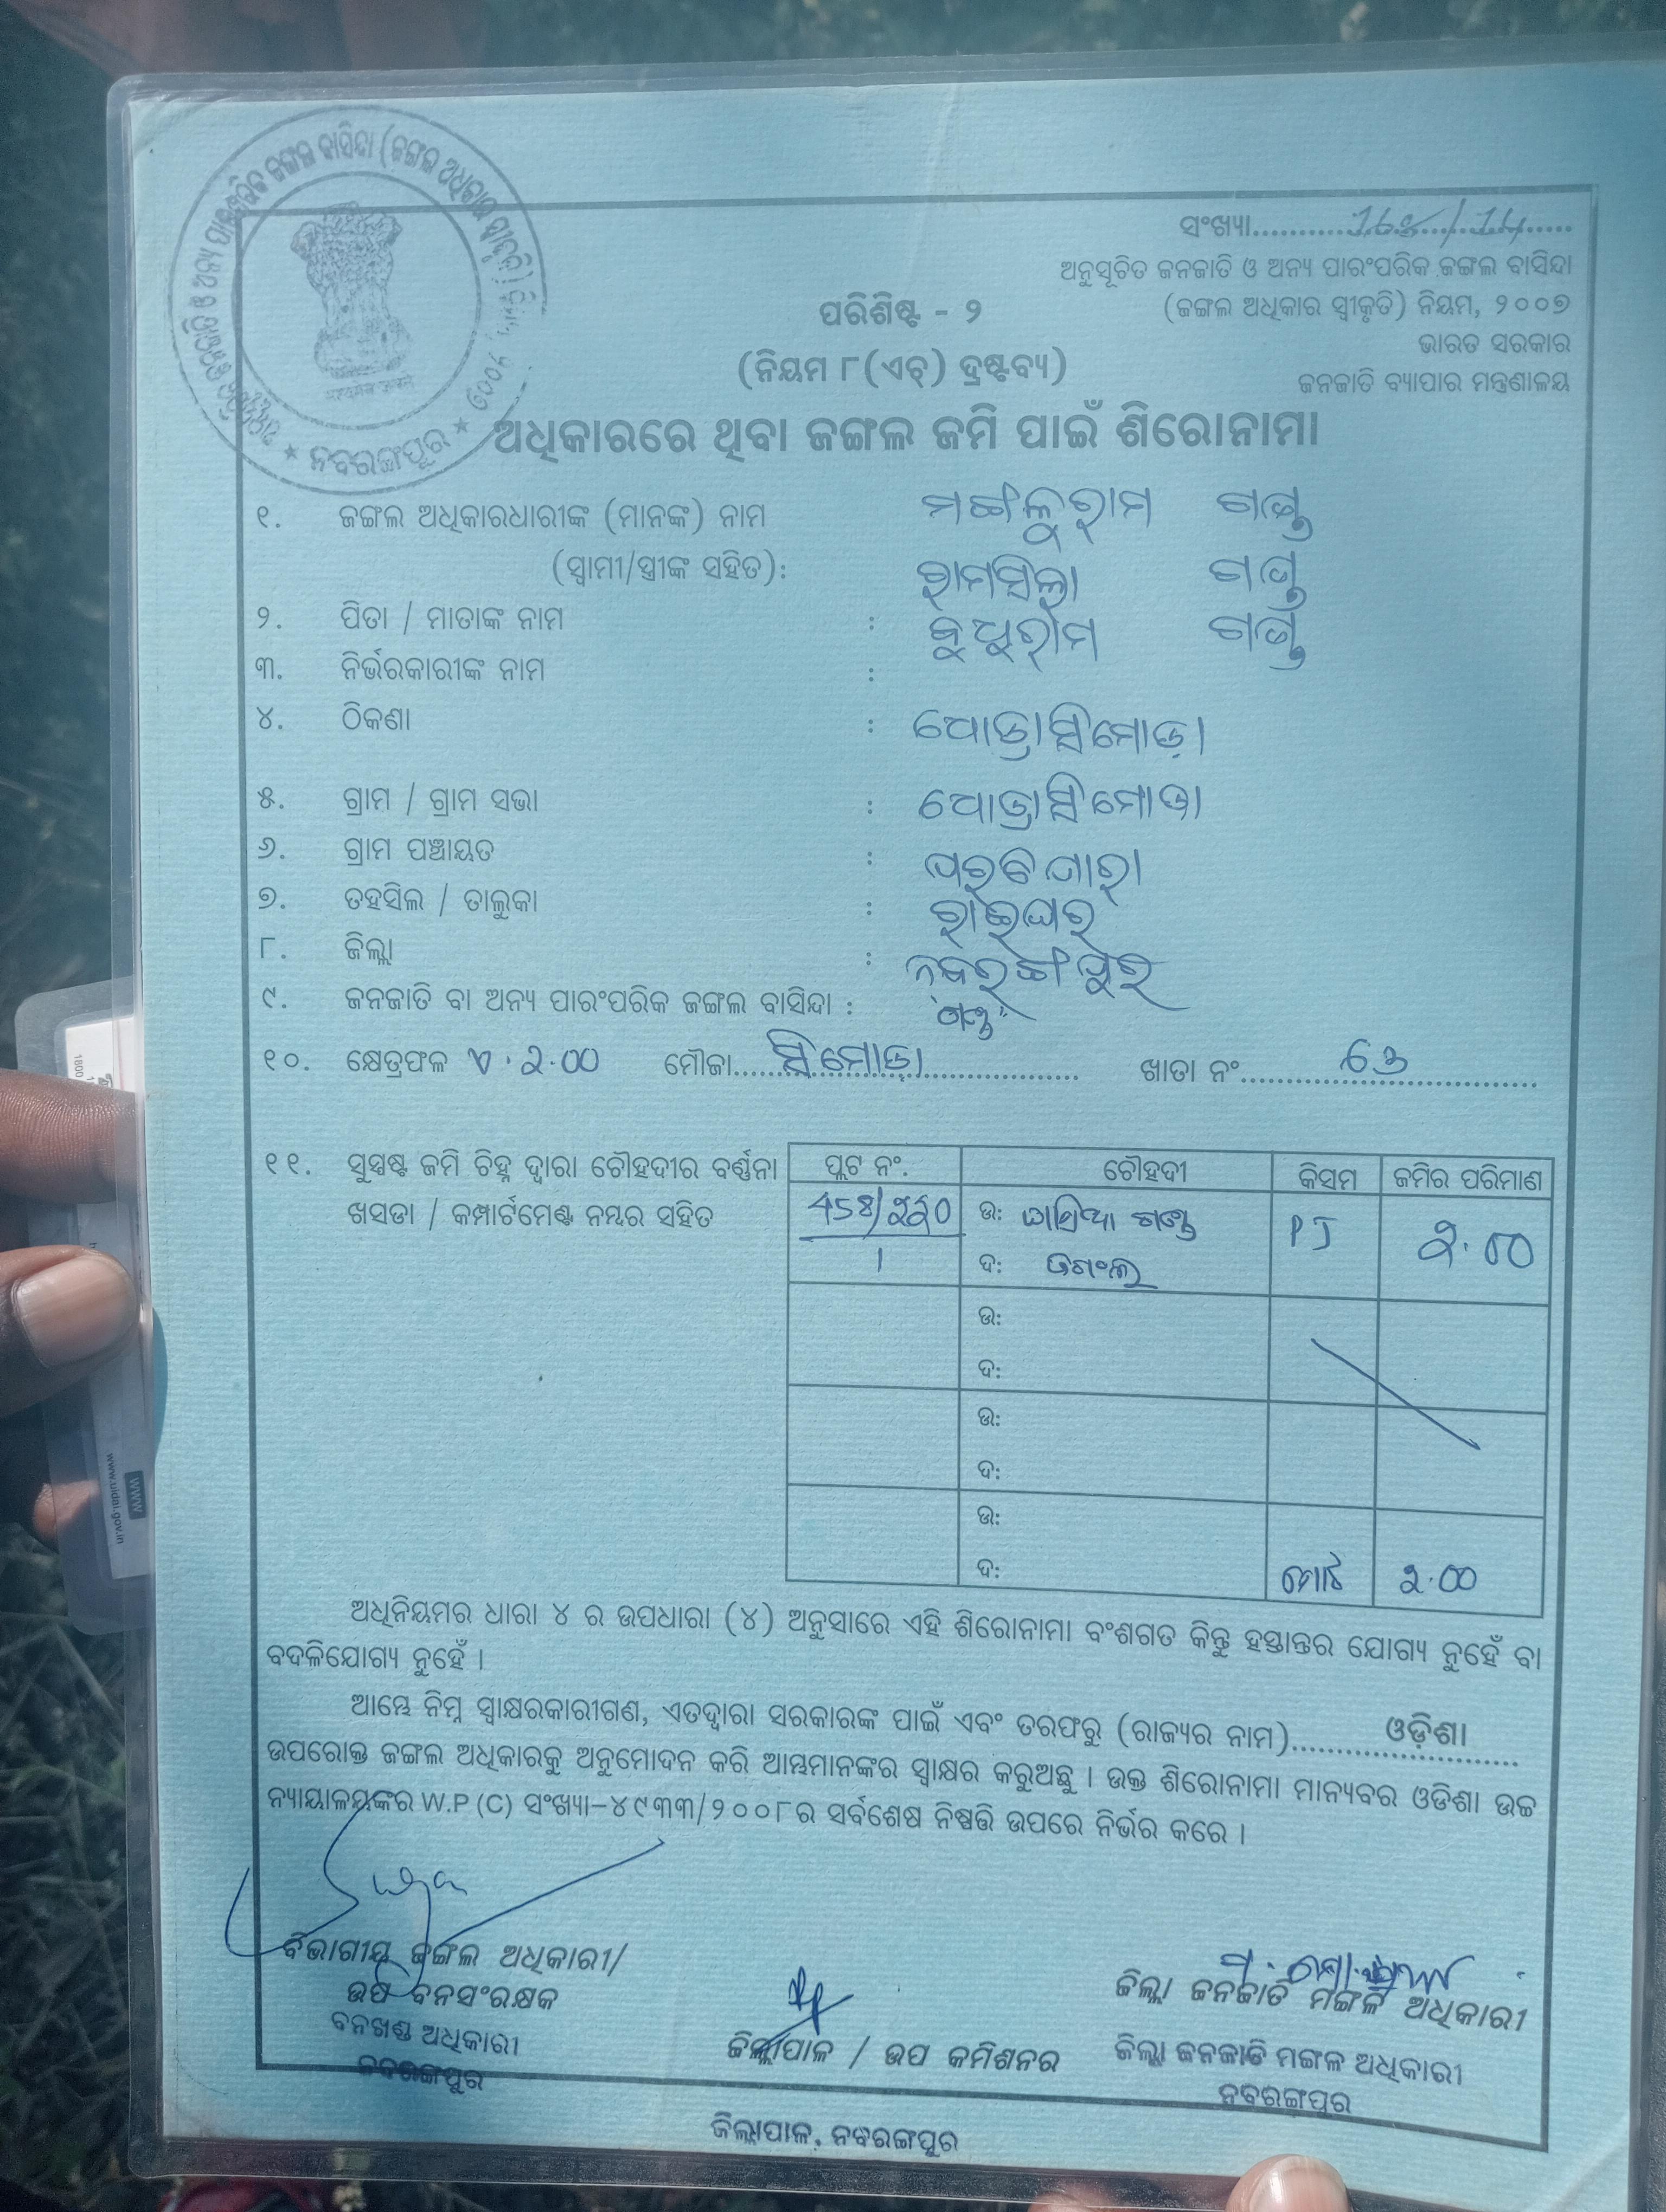 ସଂଖ୍ୟା
ଅନୁସୂଚିତ ଜନଜାତି ଓ ଅନ୍ୟ ପାରଂପରିକ ଜଙ୍ଗଲ ବାସିନ୍ଦା
(ଜଙ୍ଗଲ ଅଧିକାର ସ୍ୱୀକୃତି) ନିୟମ, ୨୦୦୭
ଭାରତ ସରକାର
ଜନଜାତି ବ୍ୟାପାର ମନ୍ତ୍ରଣାଳୟ
ପରିଶିଷ୍ଟ - ୨
(ନିୟମ ୮(ଏଚ୍) ଦ୍ରଷ୍ଟବ୍ୟ)
ନବରଙ୍ଗପୁର
ଅଧିକାରରେ ଥିବା ଜଙ୍ଗଲ ଜମି ପାଇଁ ଶିରୋନାମା
୧. ଜଙ୍ଗଲ ଅଧିକାରଧାରୀଙ୍କ (ମାନଙ୍କ) ନାମ ମଙ୍ଗଳୁରାମ ଗଣ୍ଡ
(ସ୍ୱାମୀ/ସ୍ତ୍ରୀଙ୍କ ସହିତ): ରାମସିଲା ଗଣ୍ଡ
୨. ପିତା / ମାତାଙ୍କ ନାମ : ବୁଧୁରାମ ଗଣ୍ଡ
୩. ନିର୍ଭରକାରୀଙ୍କ ନାମ :
୪. ଠିକଣା :
୫. ଗ୍ରାମ / ଗ୍ରାମ ସଭା :
୬. ଗ୍ରାମ ପଞ୍ଚାୟତ :
୭. ତହସିଲ / ତାଲୁକା : ରାଇଘର
୮. ଜିଲ୍ଲା : ନବରଙ୍ଗପୁର
୯. ଜନଜାତି ବା ଅନ୍ୟ ପାରଂପରିକ ଜଙ୍ଗଲ ବାସିନ୍ଦା : ଗଣ୍ଡ
୧୦. କ୍ଷେତ୍ରଫଳ ୨.00 ମୌଜା ସିମୋଡ଼ା ଖାତା ନଂ
୧୧. ସୁସ୍ପଷ୍ଟ ଜମି ଚିହ୍ନ ଦ୍ୱାରା ଚୌହଦୀର ବର୍ଣ୍ଣନା
ଖସଡା / କମ୍ପାର୍ଟମେଣ୍ଟ ନମ୍ବର ସହିତ
ପ୍ଲଟ ନଂ. ଚୌହଦୀ କିସମ ଜମିର ପରିମାଣ
ଉ: ଗଣ୍ଡ PJ ୨.00
ଦ: ଜଗଂଲ
ଉ:
ଦ:
ଉ:
ଦ:
ଉ:
ଦ: ମୋଟ ୨.00
ଅଧିନିୟମର ଧାରା ୪ ର ଉପଧାରା (୪) ଅନୁସାରେ ଏହି ଶିରୋନାମା ବଂଶଗତ କିନ୍ତୁ ହସ୍ତାନ୍ତର ଯୋଗ୍ୟ ନୁହେଁ ବା
ବଦଳିଯୋଗ୍ୟ ନୁହେଁ ।
ଆମ୍ଭେ ନିମ୍ନ ସ୍ୱାକ୍ଷରକାରୀଗଣ, ଏତଦ୍ୱାରା ସରକାରଙ୍କ ପାଇଁ ଏବଂ ତରଫରୁ (ରାଜ୍ୟର ନାମ) ଓଡ଼ିଶା
ଉପରୋକ୍ତ ଜଙ୍ଗଲ ଅଧିକାରକୁ ଅନୁମୋଦନ କରି ଆମ୍ଭମାନଙ୍କର ସ୍ୱାକ୍ଷର କରୁଅଛୁ । ଉକ୍ତ ଶିରୋନାମା ମାନ୍ୟବର ଓଡିଶା ଉଚ୍ଚ
ନ୍ୟାୟାଳୟଙ୍କର W.P (C) ସଂଖ୍ୟା-୪୯୩୩/୨୦୦୮ର ସର୍ବଶେଷ ନିଷ୍ପତ୍ତି ଉପରେ ନିର୍ଭର କରେ ।
ବିଭାଗୀୟ ଜଙ୍ଗଲ ଅଧିକାରୀ/
ଉପ ବନସଂରକ୍ଷକ
ବନଖଣ୍ଡ ଅଧିକାରୀ
ନବରଙ୍ଗପୁର
ଜିଲ୍ଲାପାଳ / ଉପ କମିଶନର
ଜିଲ୍ଲାପାଳ, ନବରଙ୍ଗପୁର
ଜିଲ୍ଲା ଜନଜାତି ମଙ୍ଗଳ ଅଧିକାରୀ
ଜିଲ୍ଲା ଜନଜାତି ମଙ୍ଗଳ ଅଧିକାରୀ
ନବରଙ୍ଗପୁର
www.uidai.gov.in